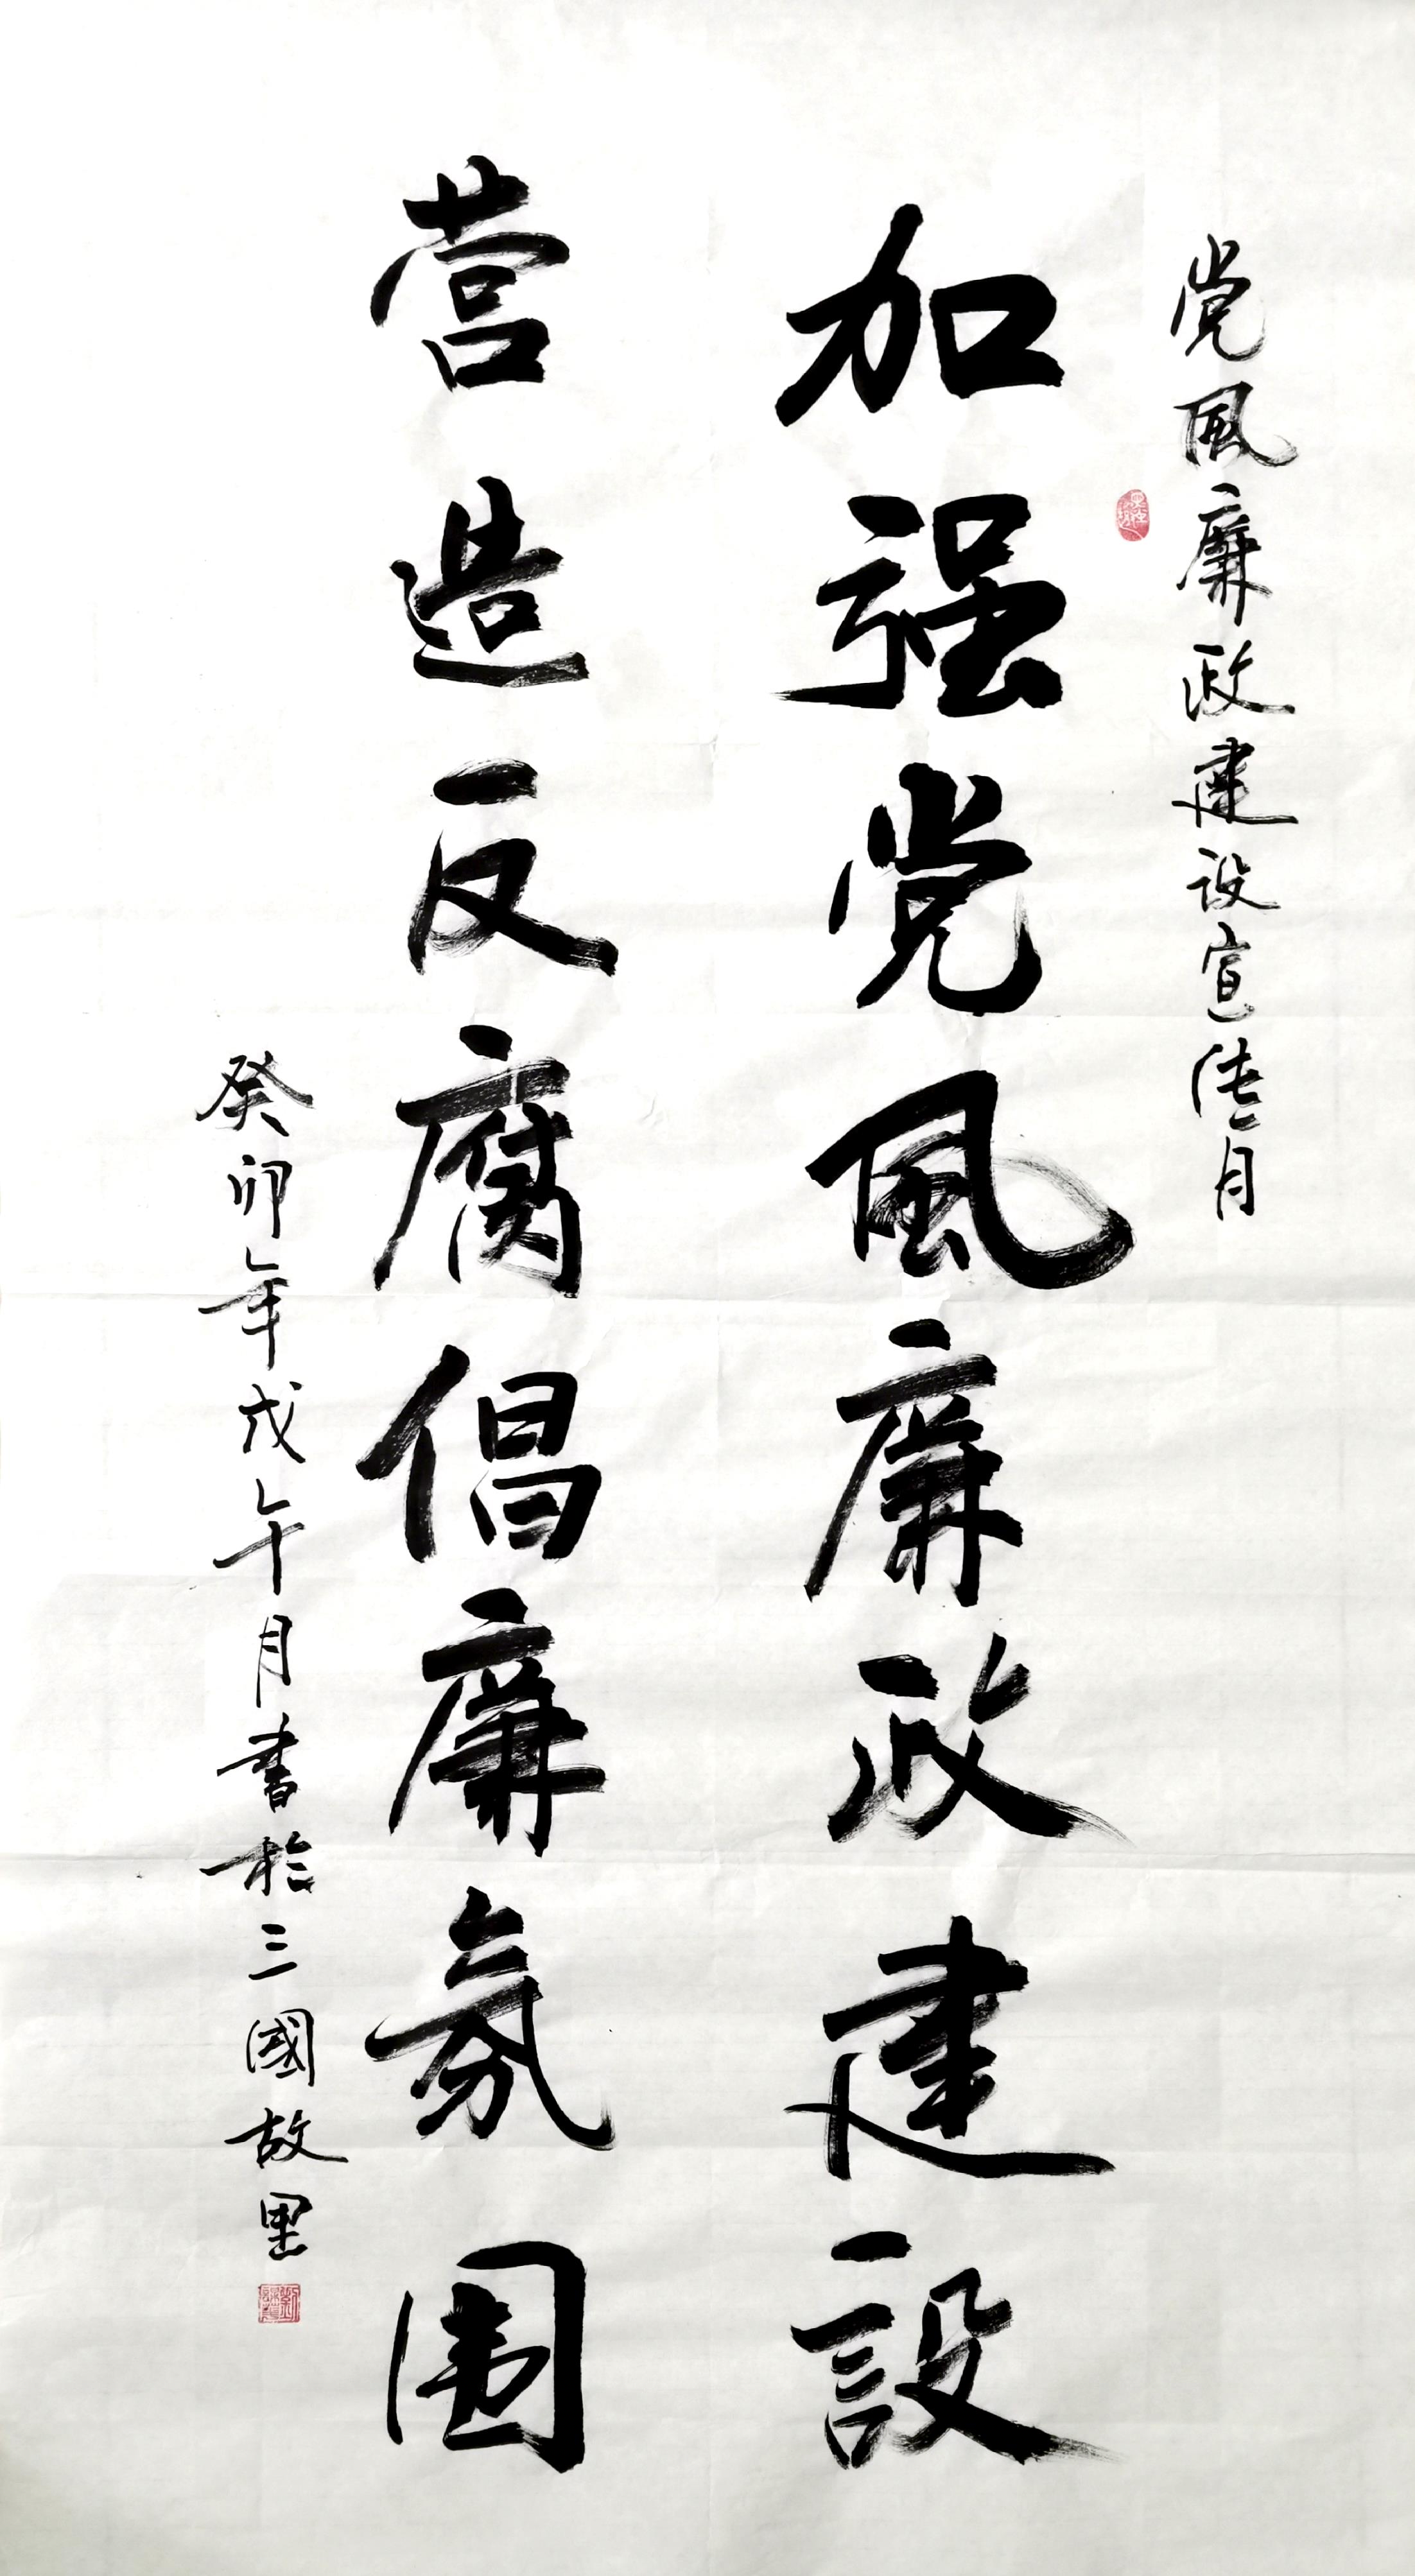 党風廉政建设宣传月
加强党風廉政建設
营造反腐倡廉氛围
癸卯年戊午月書於三國故里